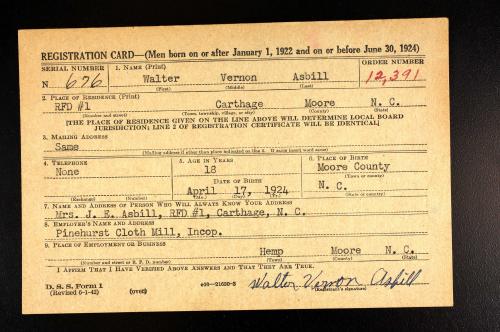 REGISTRATION CARD—(Men born on or after January 1, 1922 and on or before June 30, 1924)
SERIAL NUMBER 1. NAME (Print) ORDER NUMBER
N 676 Walter Vernon Asbill 12,391
(First) (Middle) (Last)
2. PLACE OF RESIDENCE (Print)
RFD #1 Carthage Moore N. C.
(Number and street) (Town, township, village, or city) (County) (State)
[THE PLACE OF RESIDENCE GIVEN ON THE LINE ABOVE WILL DETERMINE LOCAL BOARD
JURISDICTION; LINE 2 OF REGISTRATION CERTIFICATE WILL BE IDENTICAL]
3. MAILING ADDRESS
Same
[Mailing address if other than place indicated on line 2. If same insert word same]
4. TELEPHONE 5. AGE IN YEARS 6. PLACE OF BIRTH
None 18 Moore County
DATE OF BIRTH (Town or county)
April 17, 1924 N. C.
(Exchange) (Number) (Mo.) (Day) (Yr.) (State or country)
7. NAME AND ADDRESS OF PERSON WHO WILL ALWAYS KNOW YOUR ADDRESS
Mrs. J. E. Asbill, RFD #1, Carthage, N. C.
8. EMPLOYER'S NAME AND ADDRESS
Pinehurst Cloth Mill, Incop.
9. PLACE OF EMPLOYMENT OR BUSINESS
Hemp Moore N. C.
(Number and street or R. F. D. number) (Town) (County) (State)
I AFFIRM THAT I HAVE VERIFIED ABOVE ANSWERS AND THAT THEY ARE TRUE.
D. S. S. Form 1
(Revised 6-1-42) (over) Walter Vernon Asbill
(Registrant's signature)